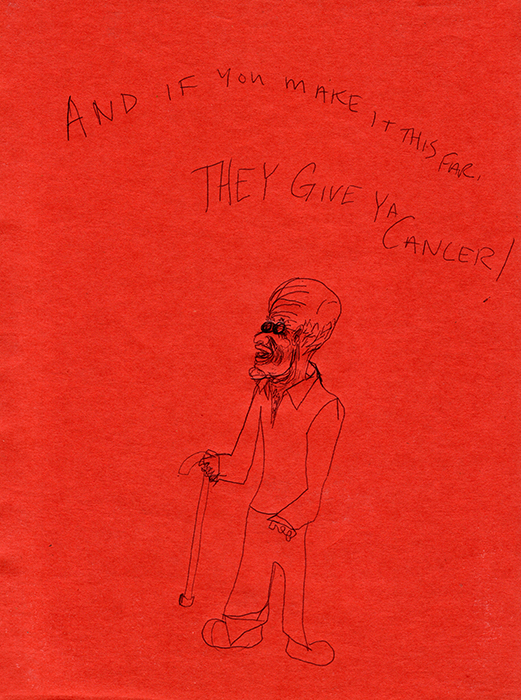 AND IF YOU MAKE IT THIS FAR.
THEY GIVE YA
CANCER!